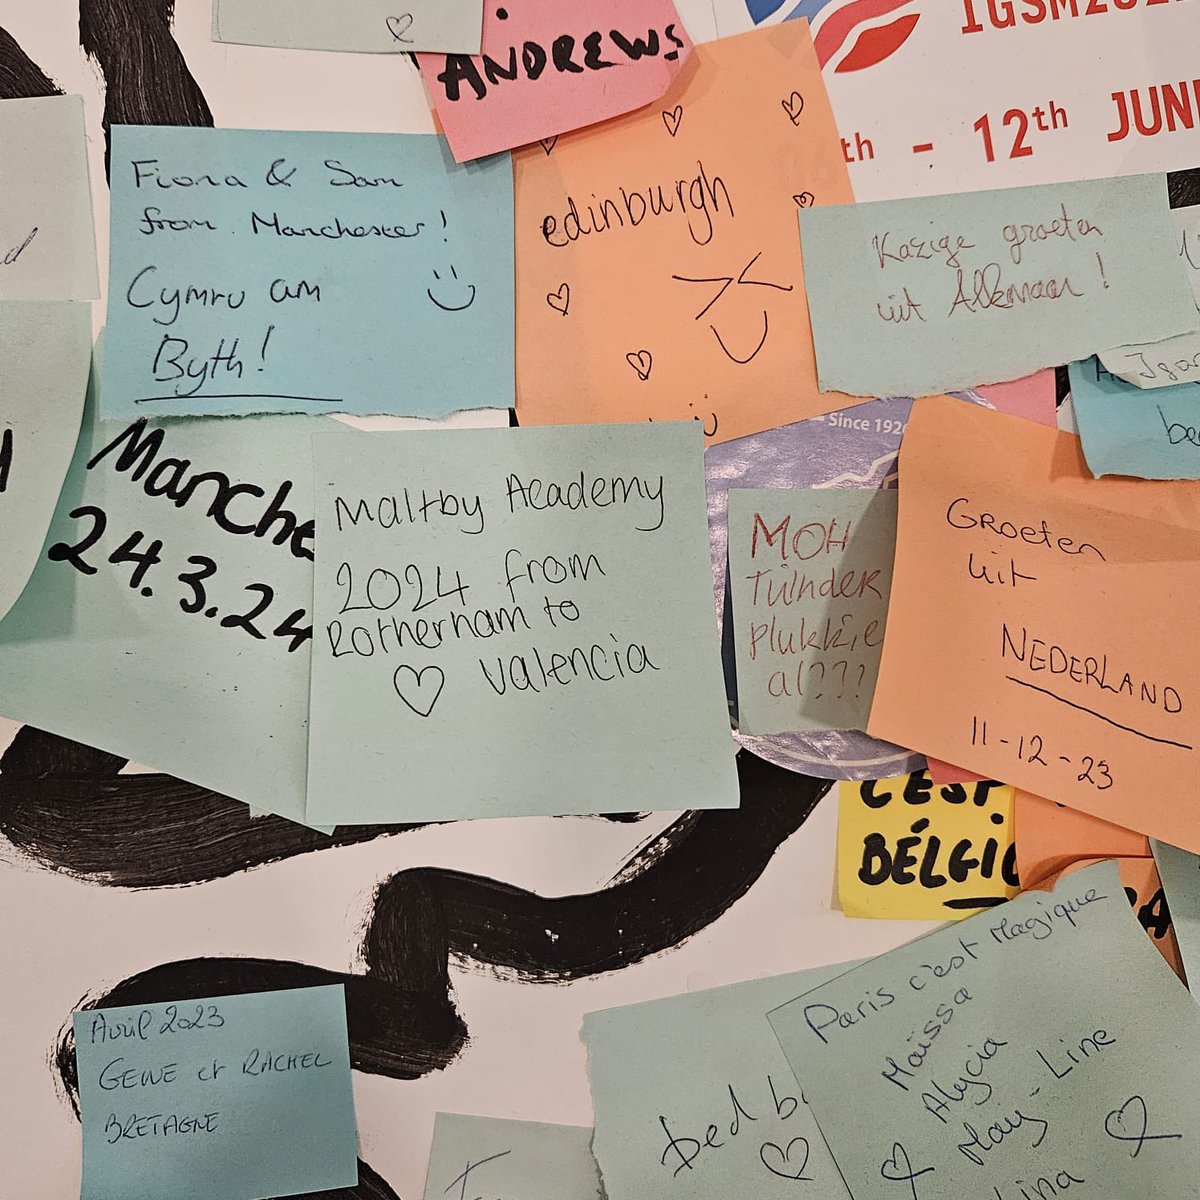 ANDREWS
12th JUN
th -
Fiona & Sam
from Manchester!
Cymru am
Byth!
edinburgh
Kazige groeten
uit Alkmaar!
Since 192
Manche
24.3.24
Maltby Academy
2024 from
Rotherham to
Valencia
MOH
Tuinder
plukkie
al???
GROETEN
uit
NEDERLAND
11-12-23
C'EST
BÉLGI
Paris c'est Magique
Maïssa
Alycia
Maïj-Line
ina
Avril 2023
GEWE et RACHEL
BRETAGNE
Ded b
be